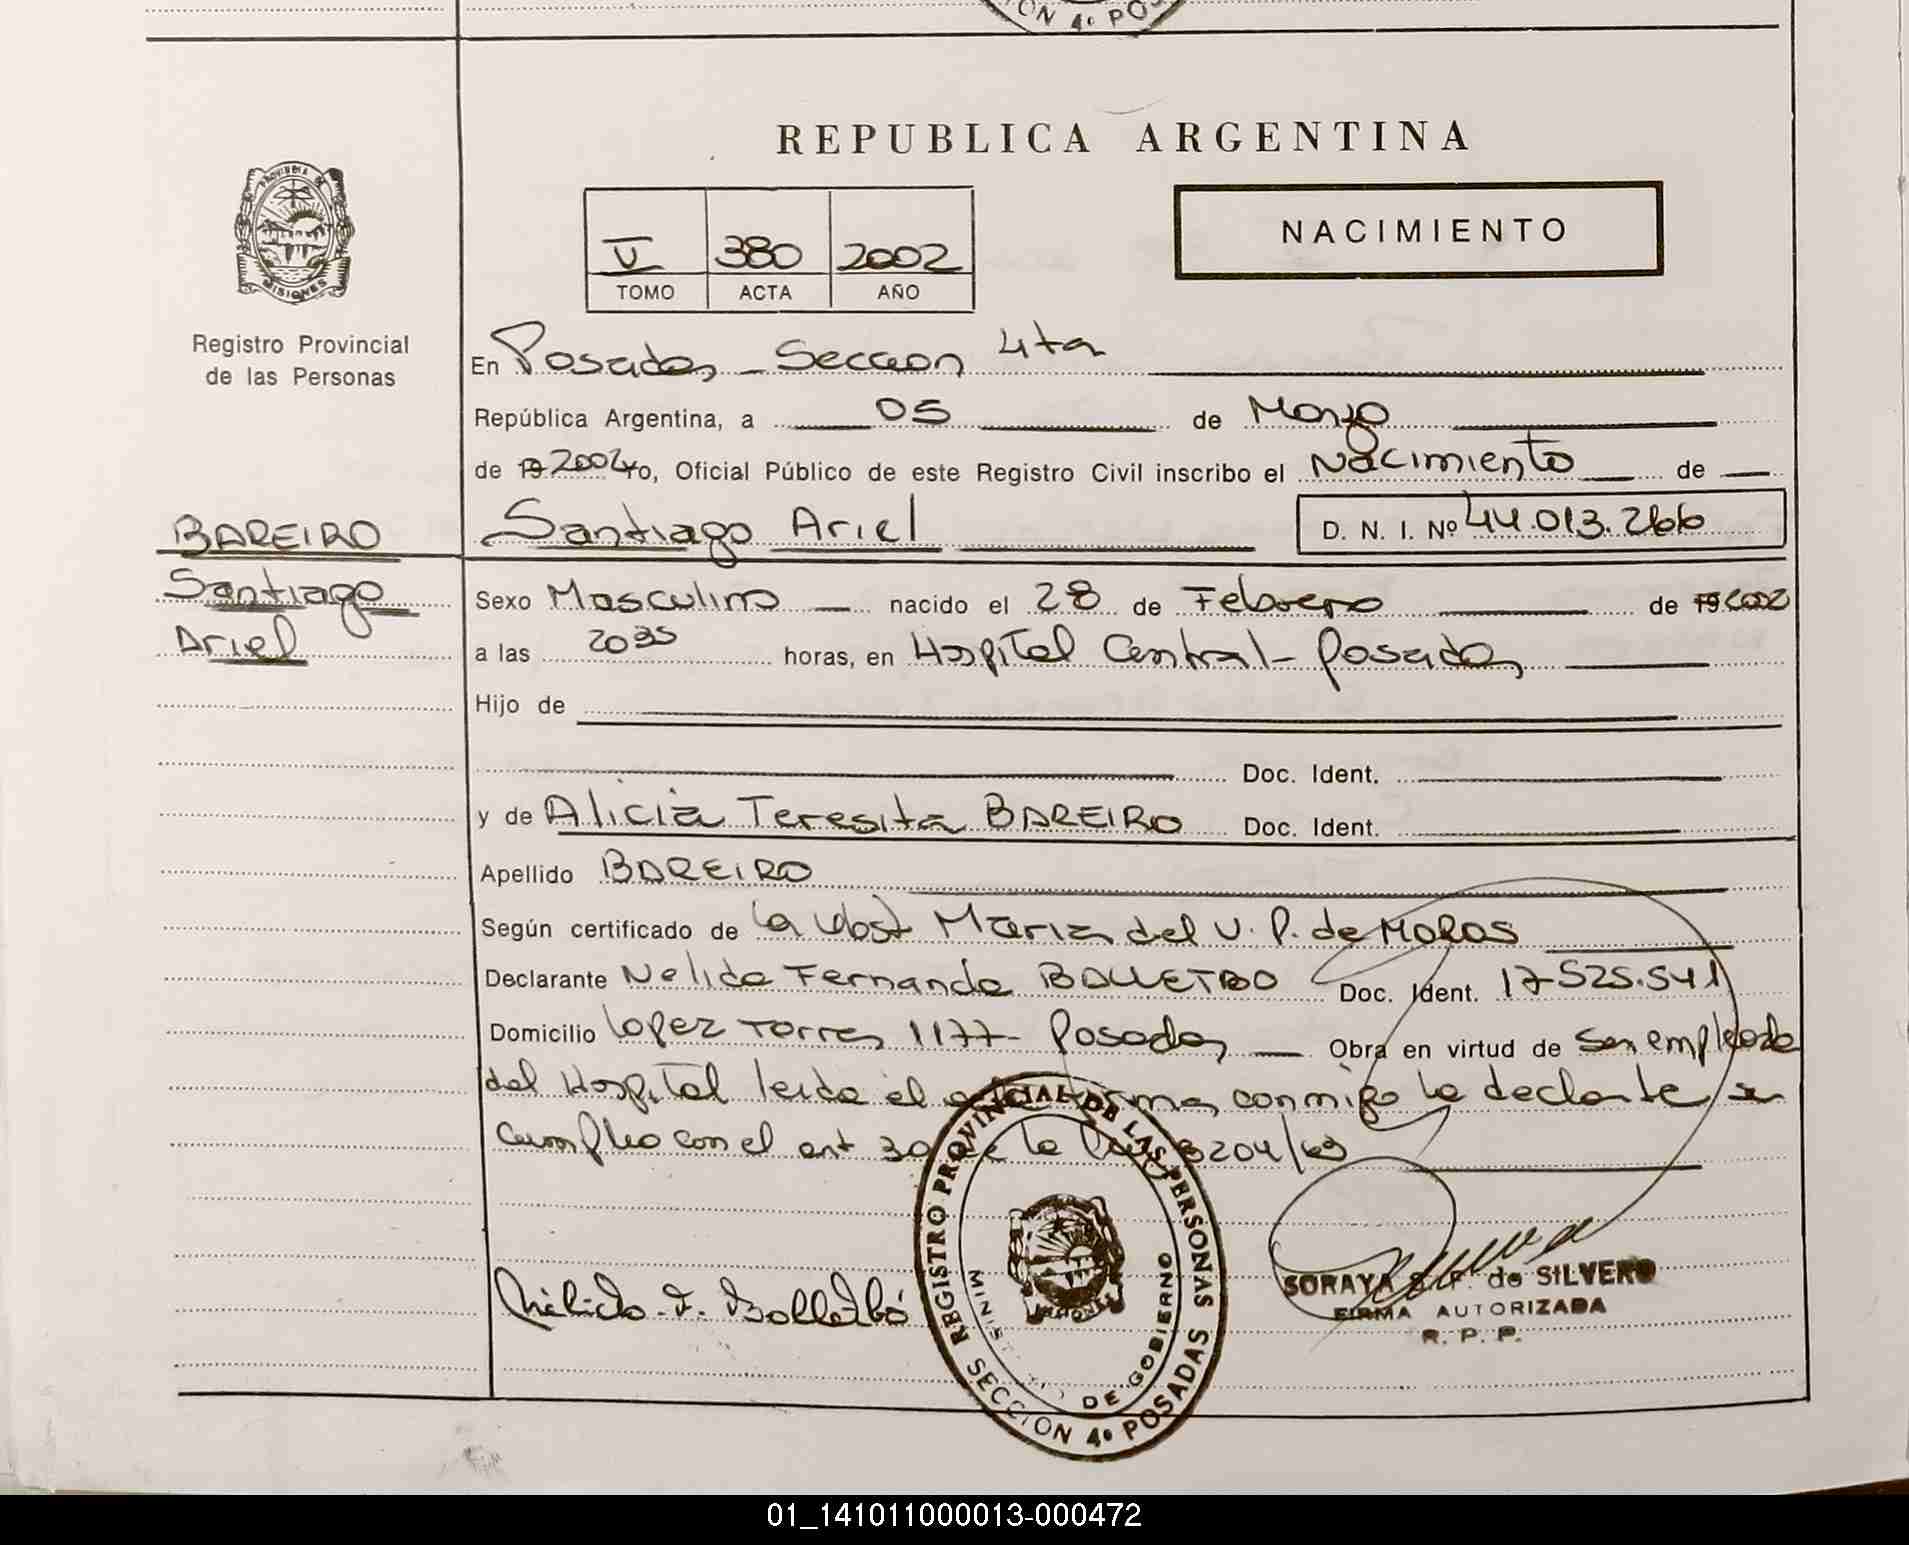 ON 4º POS
PROVINCIA DE
MISIONES
Registro Provincial
de las Personas
REPUBLICA ARGENTINA
NACIMIENTO
V 380 2002
TOMO ACTA AÑO
En Posadas - Seccion 4ta
República Argentina, a 05 de Marzo
de 19 2002 yo, Oficial Público de este Registro Civil inscribo el Nacimiento de
BAREIRO
Santiago
Ariel
Santiago Ariel D. N. I. Nº 44.013.266
Sexo Masculino nacido el 28 de Febrero de 19 2002
a las 2035 horas, en Hospital Central - Posadas
Hijo de
Doc. Ident.
y de Alicia Teresita BAREIRO Doc. Ident.
Apellido BAREIRO
Según certificado de la Obst Maria del V. P. de MOROS
Declarante Nelida Fernanda BALLETBO Doc. Ident. 17.525.541
Domicilio Lopez Torres 1177 - Posadas Obra en virtud de Ser empleada
del Hospital leida el acta firma conmigo la declarante se
cumplio con el art 30 de la Ley 8204/63
Nelida F. Balletbó
REGISTRO PROVINCIAL DE LAS PERSONAS
SECCION 4º POSADAS
DE GOBIERNO
SORAYA de SILVERO
FIRMA AUTORIZADA
R. P. P.
01_141011000013-000472